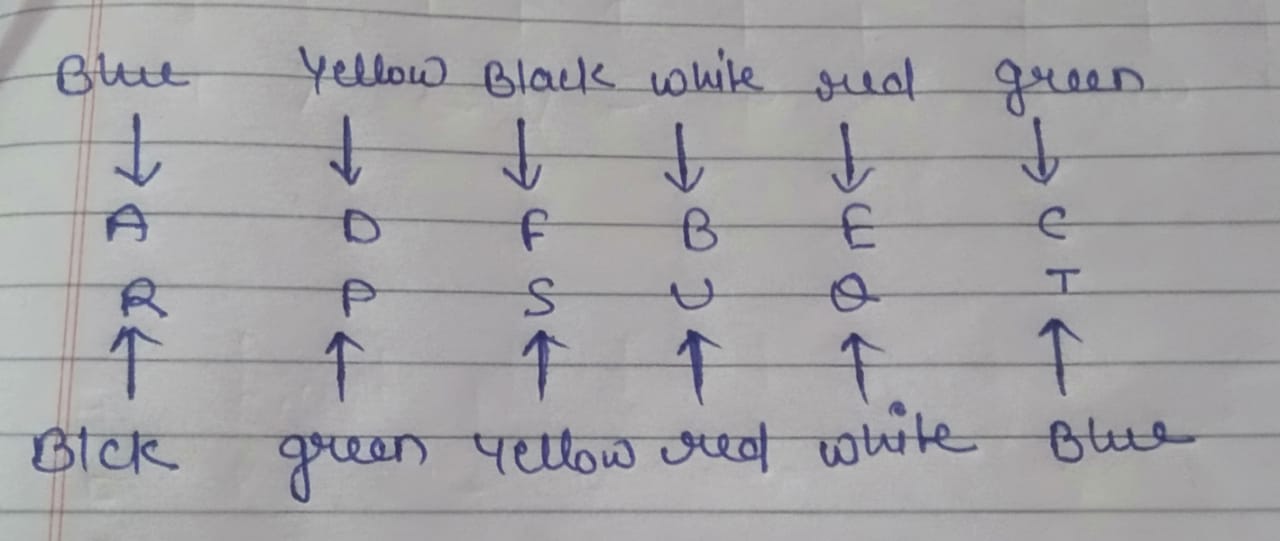 Blue Yellow Black white red green
↓ ↓ ↓ ↓ ↓ ↓
A D F B E C
R P S U Q T
↑ ↑ ↑ ↑ ↑ ↑
Blck green Yellow red white Blue